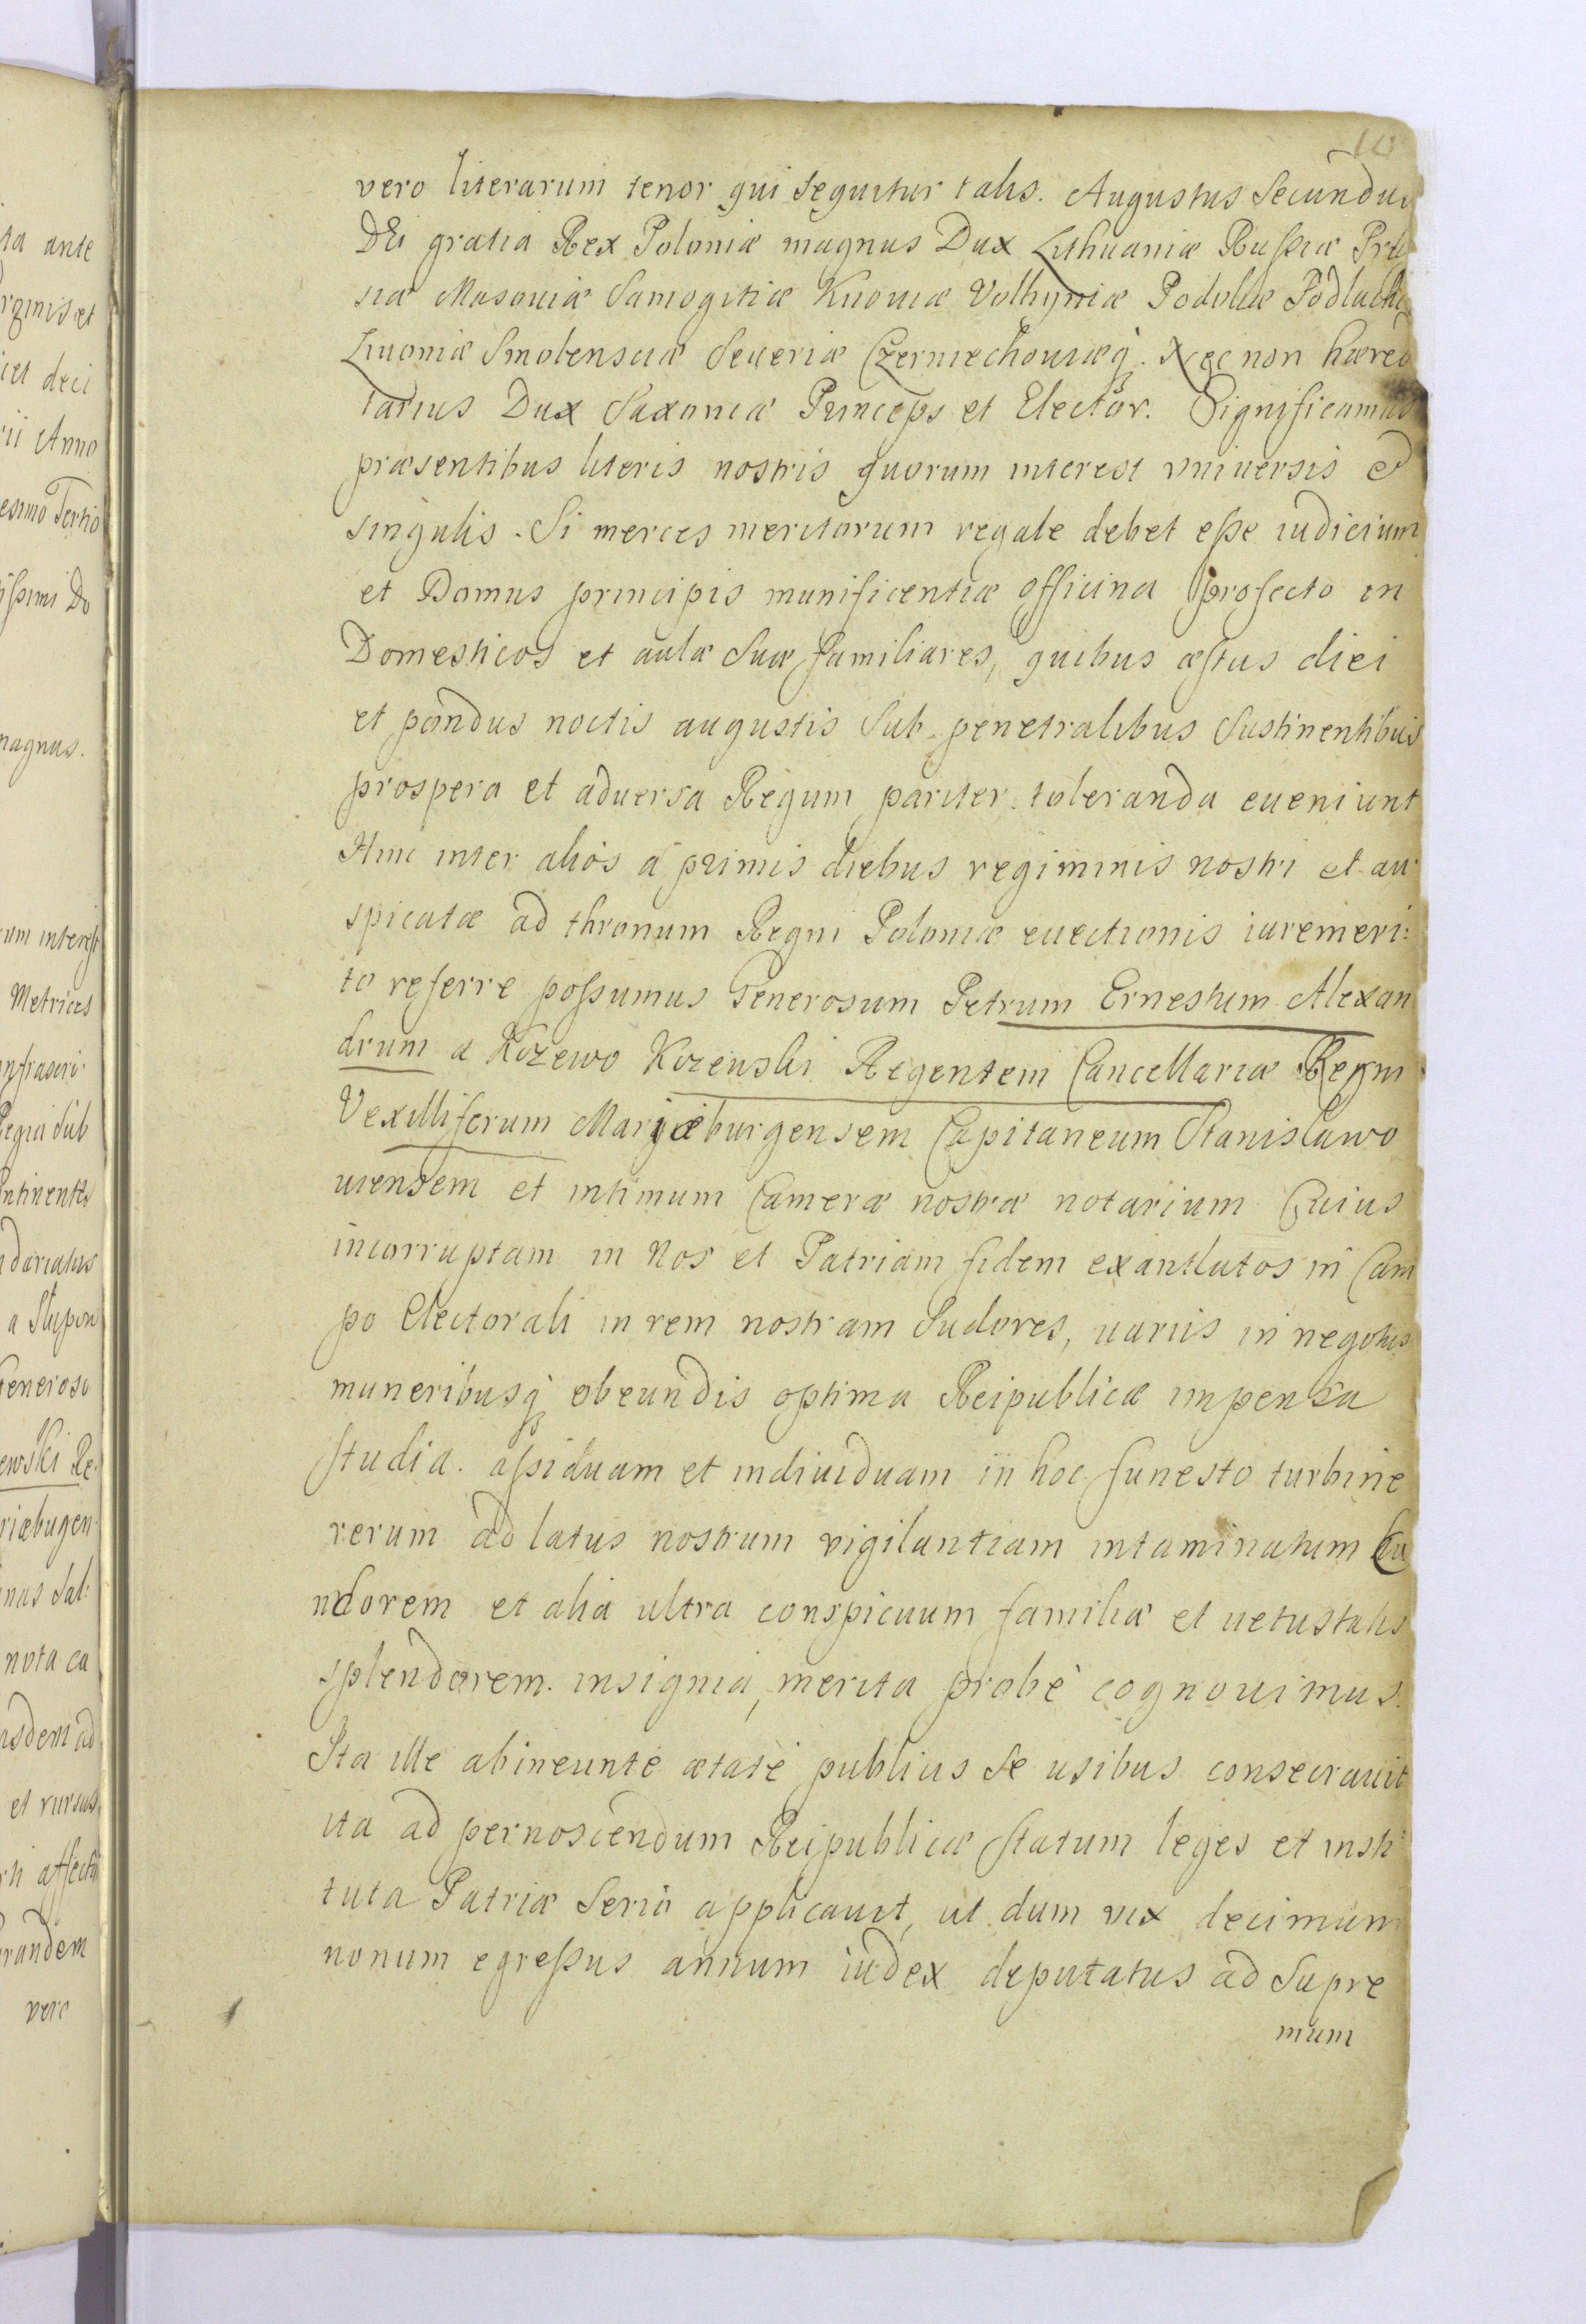 10
vero literarum tenor qui sequitur talis. Augustus Secundus
DEi gratia Rex Poloniæ magnus Dux Lithuaniæ Rußiæ Pru
siæ Masoviæ Samogitiæ Kiioviæ Volhyniæ Podoliæ Podlachi
Livoniæ Smolensciæ Severiæ Czerniechoviæq. Nec non hæred
tarius Dux Saxoniæ Princeps et Elector. Significamus
præsentibus literis nostris quorum interest vniuersis et
singulis. Si merces meritorum regale debet eße iudicium
et Domus principis munificentiæ officina profecto in
Domesticos et aulæ Suæ familiares, quibus æstus diei
et pondus noctis augustis Sub penetralibus Sustinentibus
prospera et aduersa Regum pariter toleranda eueniunt
Hinc inter alios à primis diebus regiminis nostri et au
spicatæ ad thronum Regni Poloniæ euectionis iuremeri:
to referre poßumus Generosum Petrum Ernestum Alexan
drum a Kczewo Kczewski Regentem Cancellariæ Regni
Vexilliferum Mariæburgensem Capitaneum Stanislawo
uiensem et intimum Cameræ nostræ notarium Cuius
incorruptam in Nos et Patriam fidem exantlatos in Cam
po Electorali in rem nostram Sudores, uariis in negotiis
muneribusq obeundis optima Reipublicæ impensa
studia. aßiduam et indiuiduam in hoc funesto turbine
rerum ad latus nostrum vigilantiam intaminatum Ca
ndorem et alia ultra conspicuum familiæ et uetustatis
splendorem. insignia, merita probè cognouimus.
Ita ille abineunte ætate publicis Se usibus consecrauit
ita ad pernoscendum Reipublicæ statum leges et insti
tuta Patriæ Seriò applicauit, ut dum vix decimum
nonum egreßus annum iudex deputatus ad Supre
mum